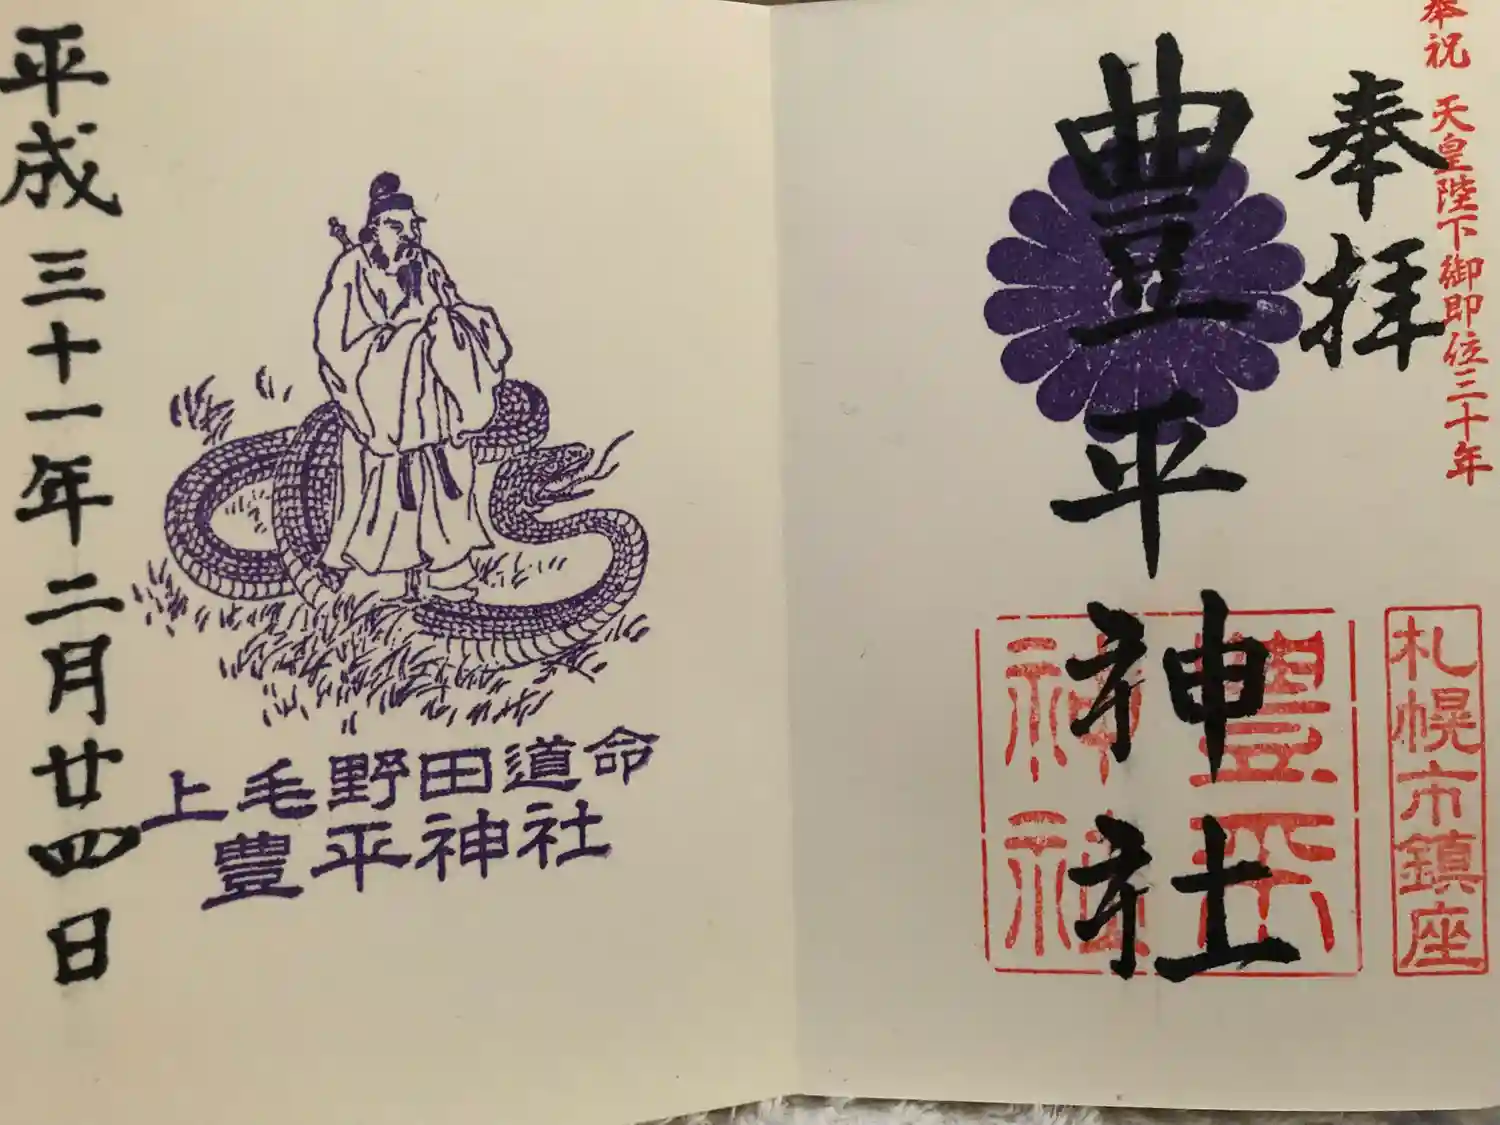 奉祝 天皇陛下御即位三十年
奉拝
豊平神社
札幌市鎮座
豊平
神社
上毛野田道命
豊平神社
平成三十一年二月廿四日